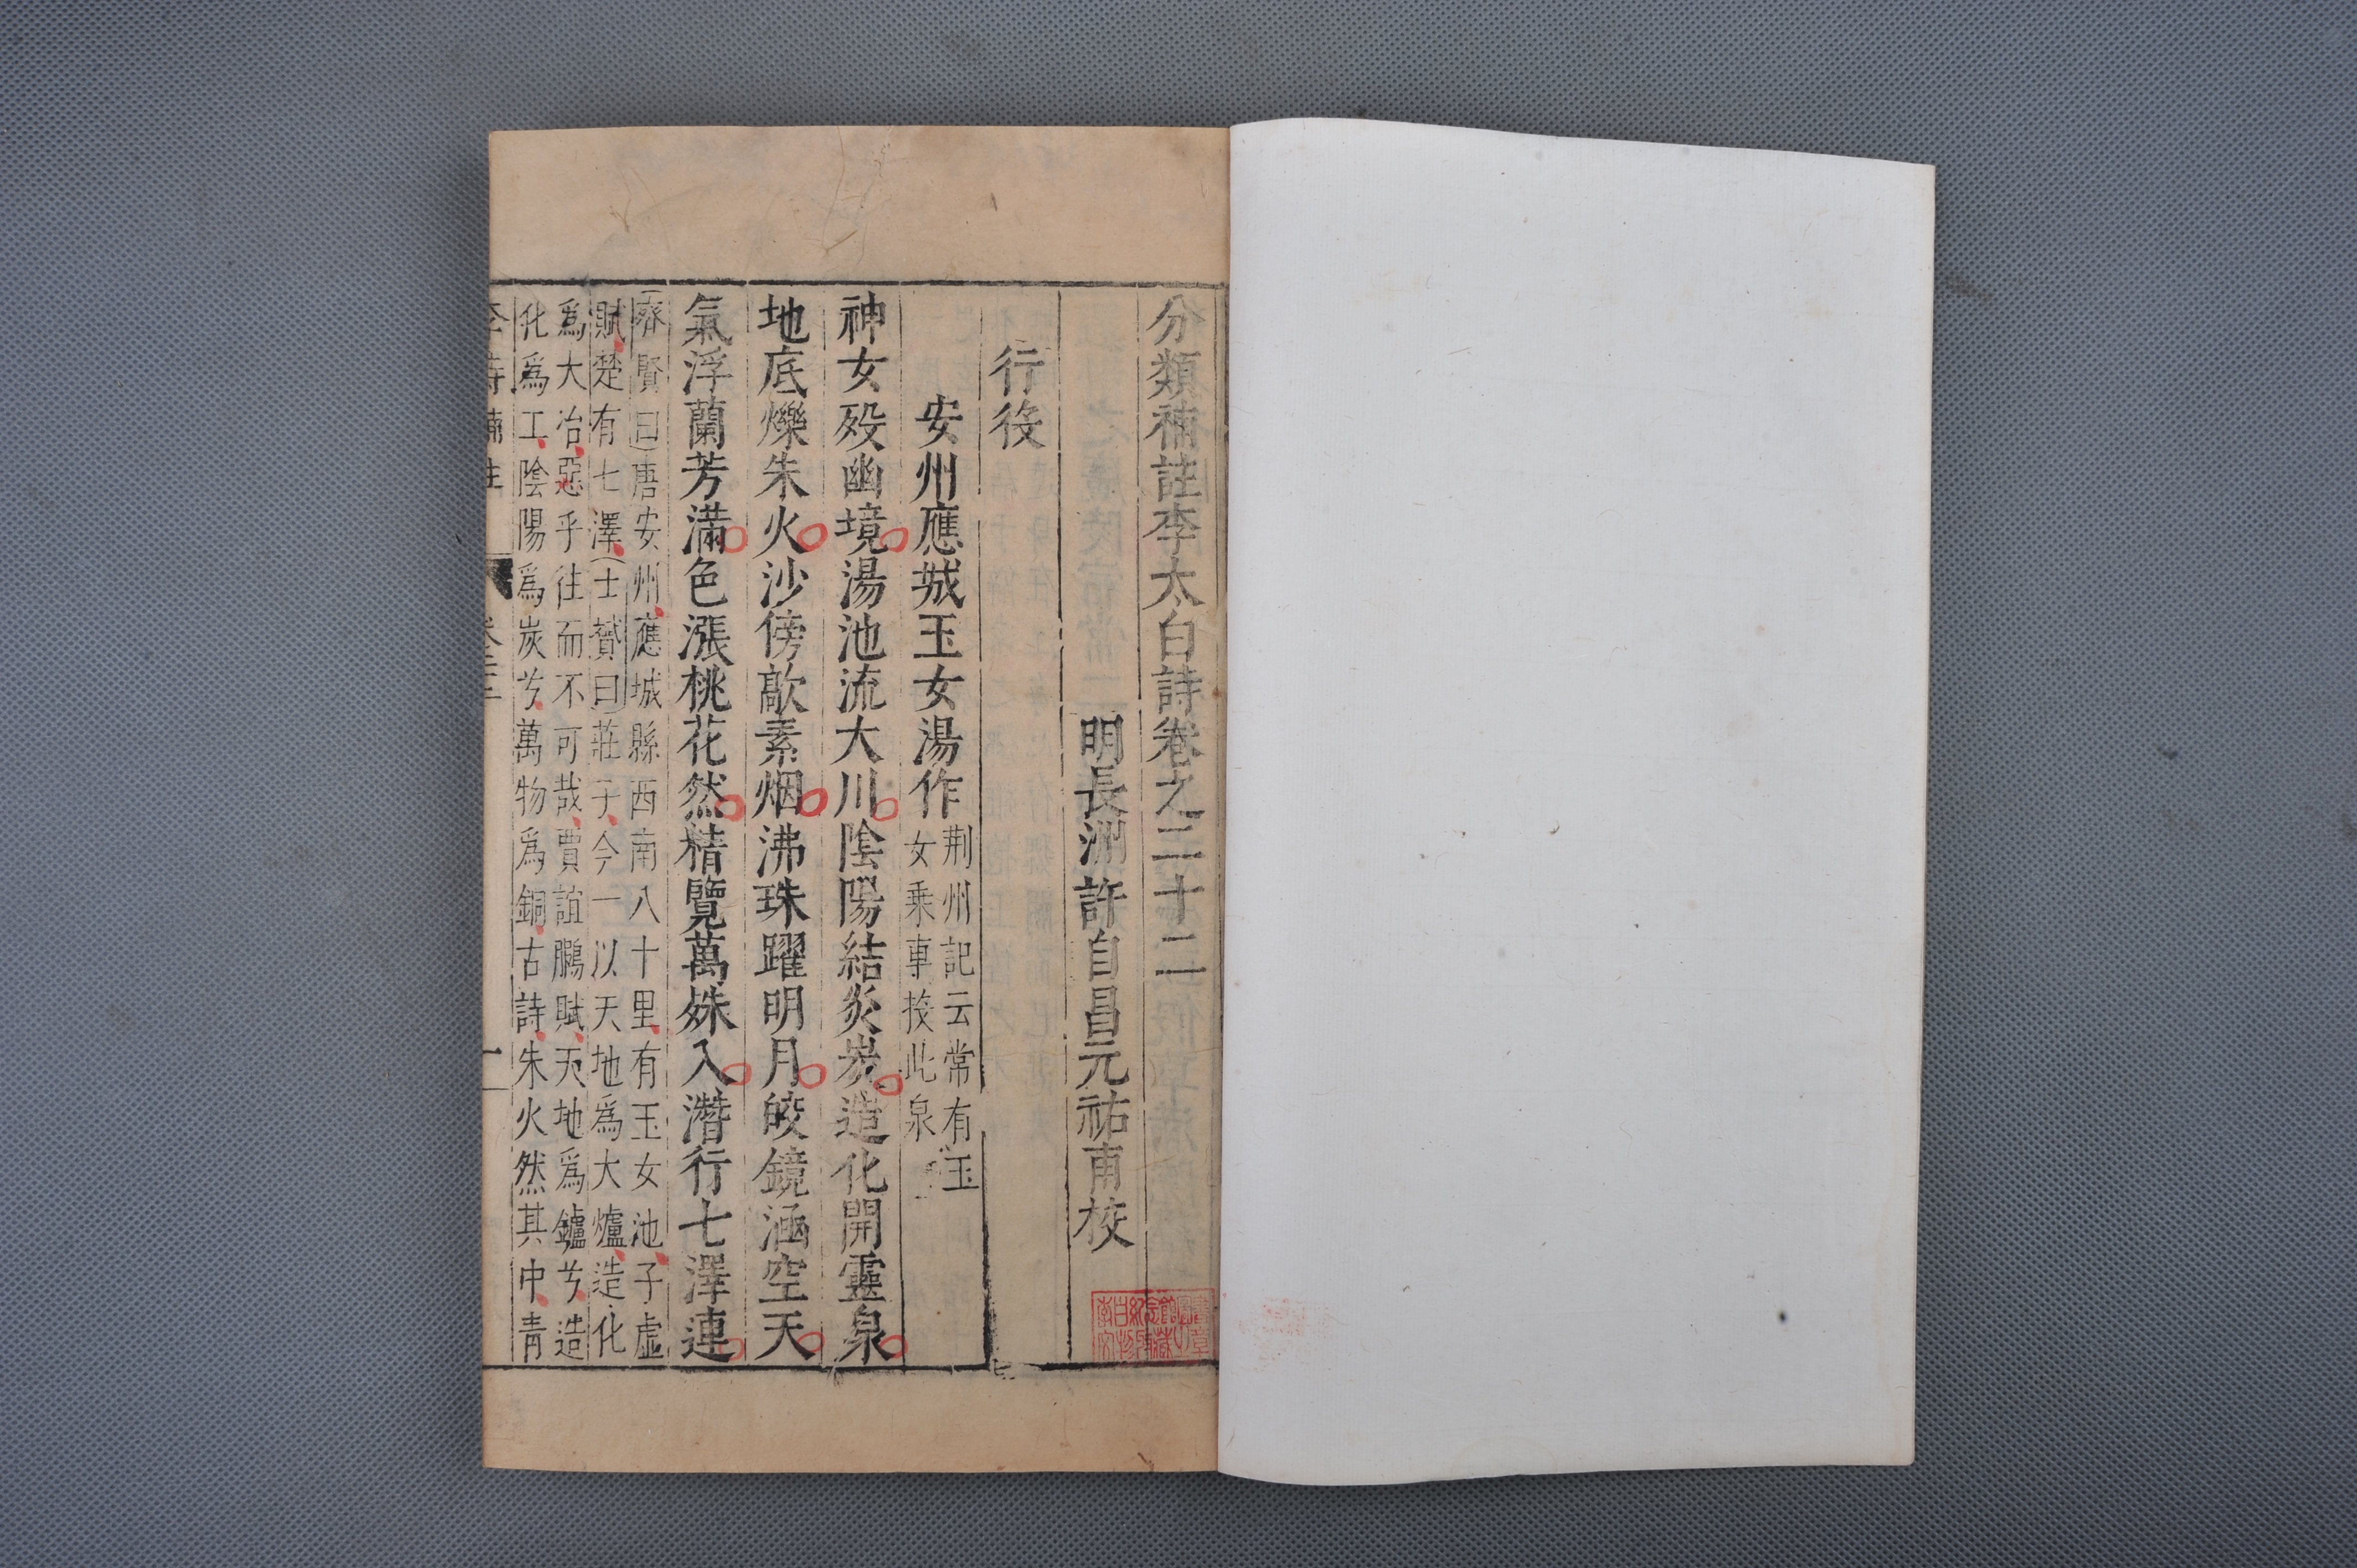 分類補註李太白詩卷之二十二
明長洲許自昌元祐甫校
行役
安州應城玉女湯作
荆州記云常有玉
女乗車投此泉
神女殁幽境湯池流大川陰陽結炎炭造化開靈泉
地底爍朱火沙傍歊素烟沸珠躍明月皎鏡涵空天
氣浮蘭芳滿色漲桃花然精覽萬殊入潛行七澤連
齊賢曰唐安州應城縣西南八十里有玉女池子虚
賦楚有七澤士贇曰莊子今一以天地爲大爐造化
爲大冶惡乎往而不可哉賈誼鵬賦天地爲鑪兮造
化爲工陰陽爲炭兮萬物爲銅古詩朱火然其中青